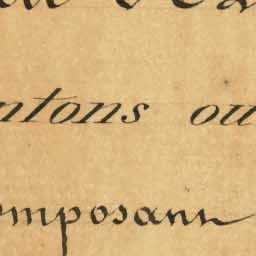 ntons ou
omposant